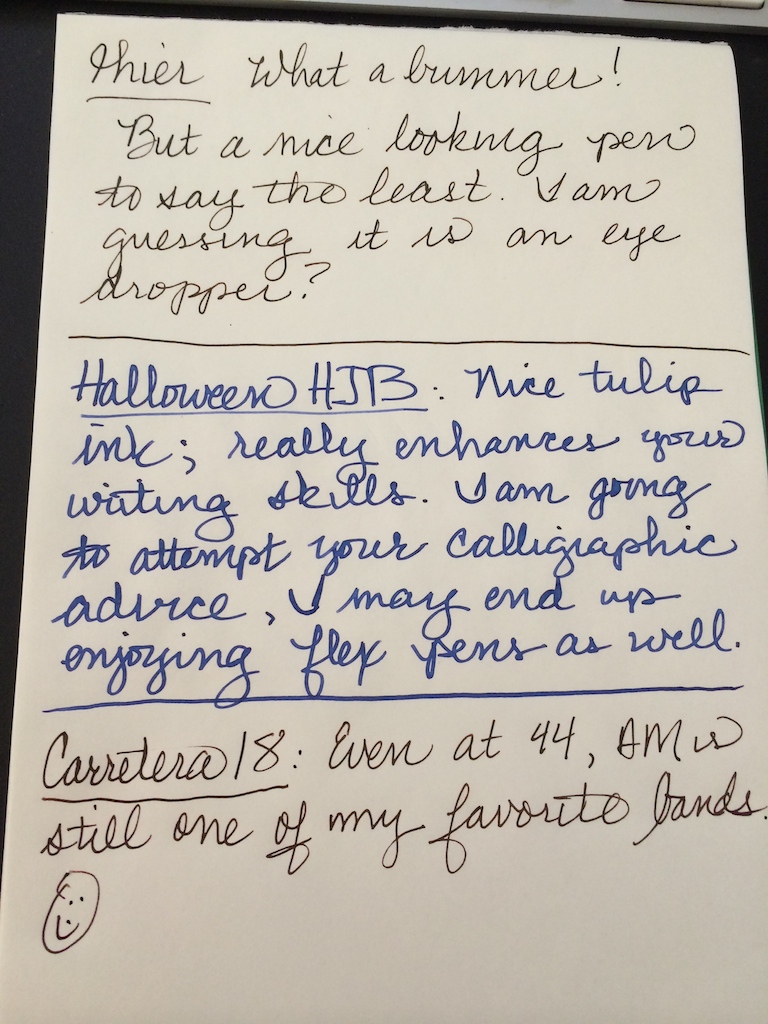 thier What a bummer!
But a nice looking pen
to say the least. I am
guessing it is an eye
dropper?
Halloween HJB: Nice tulip
ink; really enhances your
writing skills. I am going
to attempt your calligraphic
advice, I may end up
enjoying flex pens as well.
Carretera18: Even at 44, AM is
still one of my favorite bands.